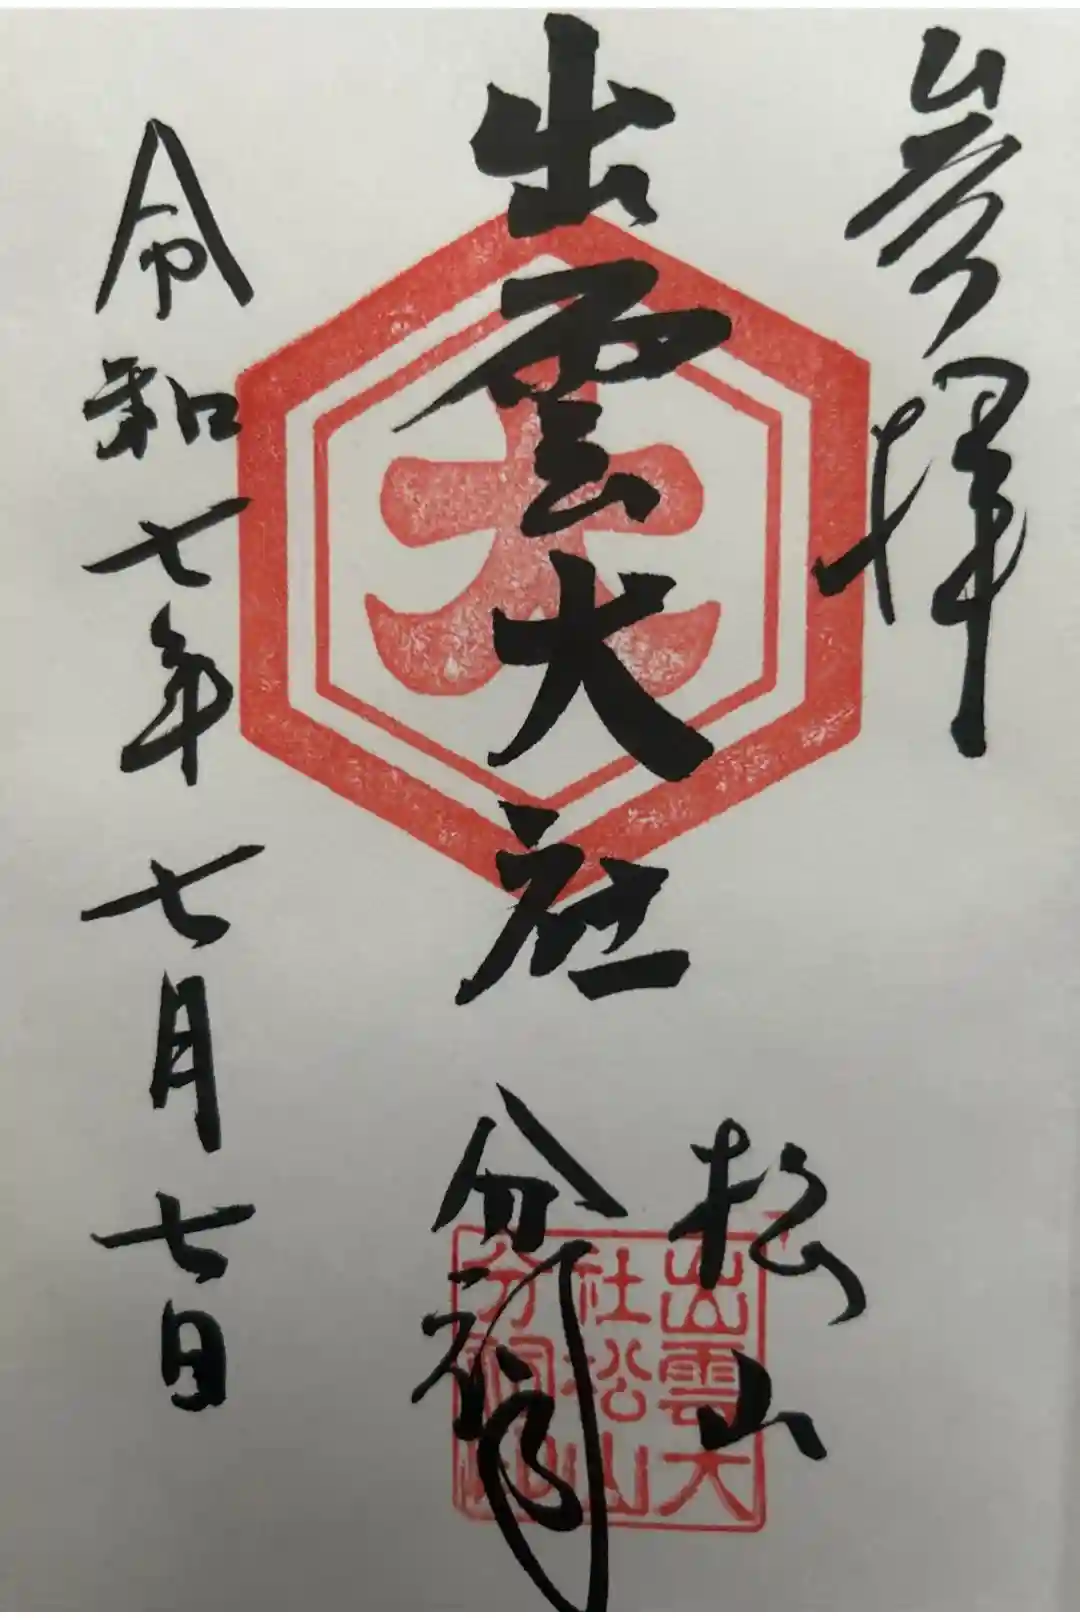 参拝
出雲大社
松山
分祠
令和七年七月七日
大
出雲大
社松山
分祠